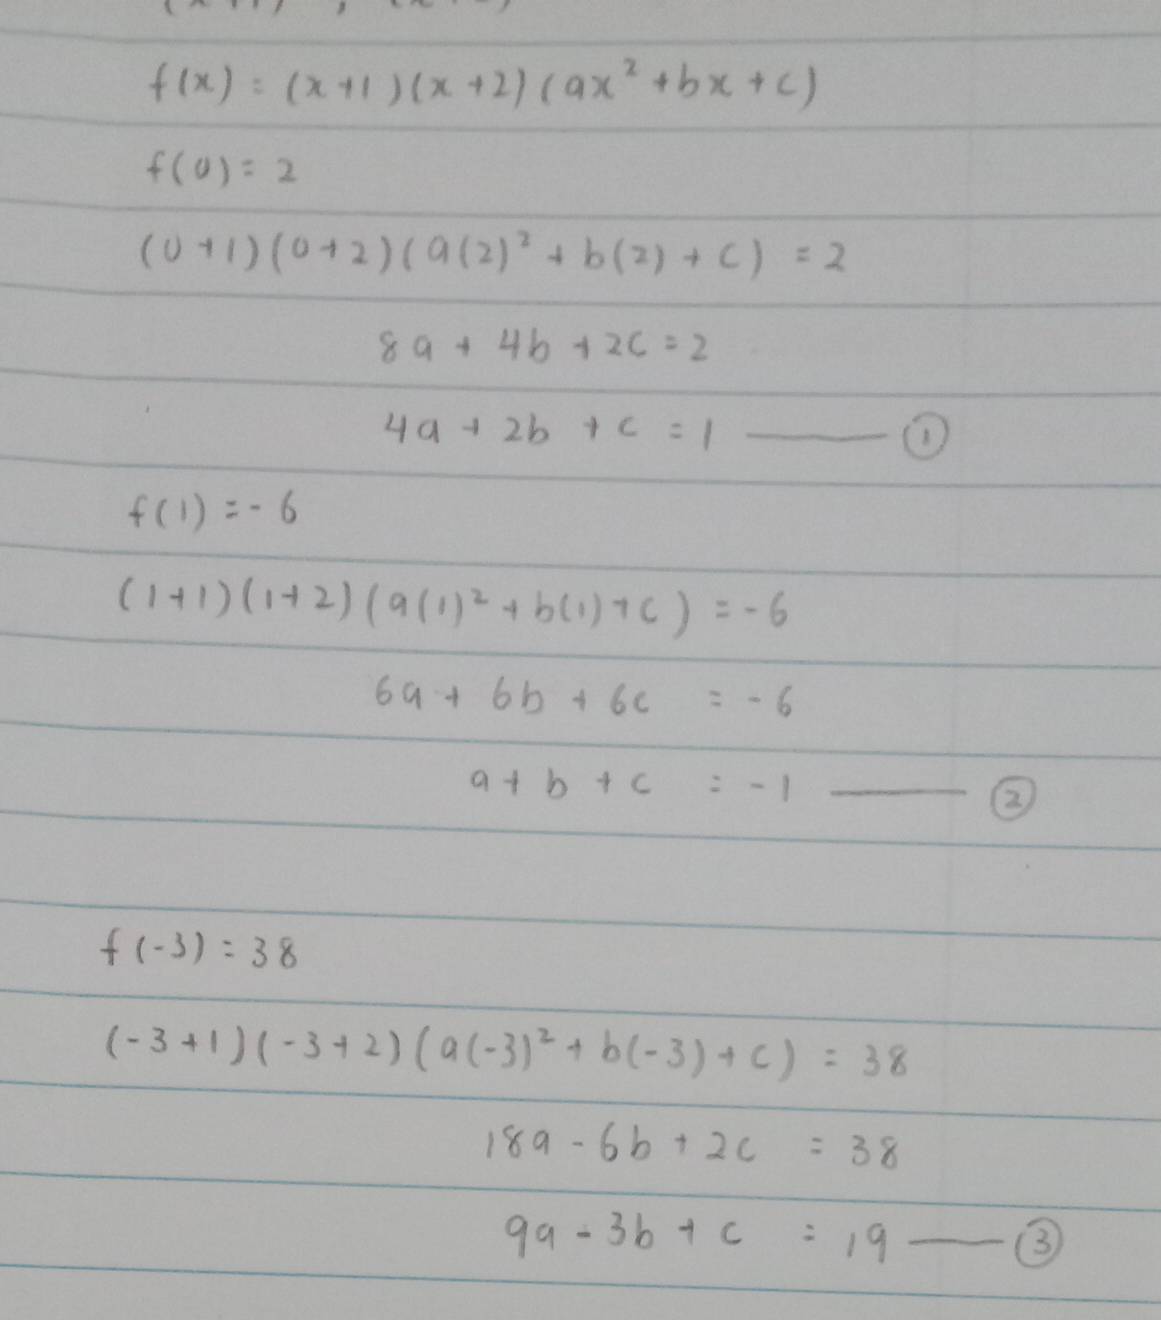 f(x) = (x+1)(x+2)(ax²+bx+c)
f(0) = 2
(0+1)(0+2)(a(2)²+b(2)+c) = 2
8a + 4b + 2c = 2
4a + 2b + c = 1 —— ①
f(1) = -6
(1+1)(1+2)(a(1)²+b(1)+c) = -6
6a + 6b + 6c = -6
a + b + c = -1 —— ②
f(-3) = 38
(-3+1)(-3+2)(a(-3)²+b(-3)+c) = 38
18a - 6b + 2c = 38
9a - 3b + c = 19 —— ③